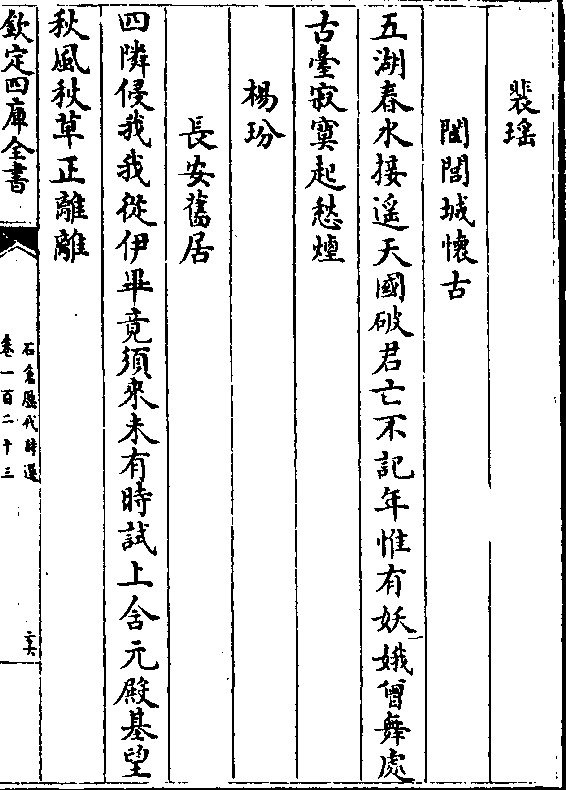 裴瑶
闔閭城懐古
五湖春水接遥天國破君亡不記年惟有妖娥曽舞處
古臺寂寞起愁煙
楊玢
長安舊居
四隣侵我我從伊畢竟須來未有時試上含元殿基望
秋風秋草正離離
欽定四庫全書
石倉歴代詩選
卷一百二十三